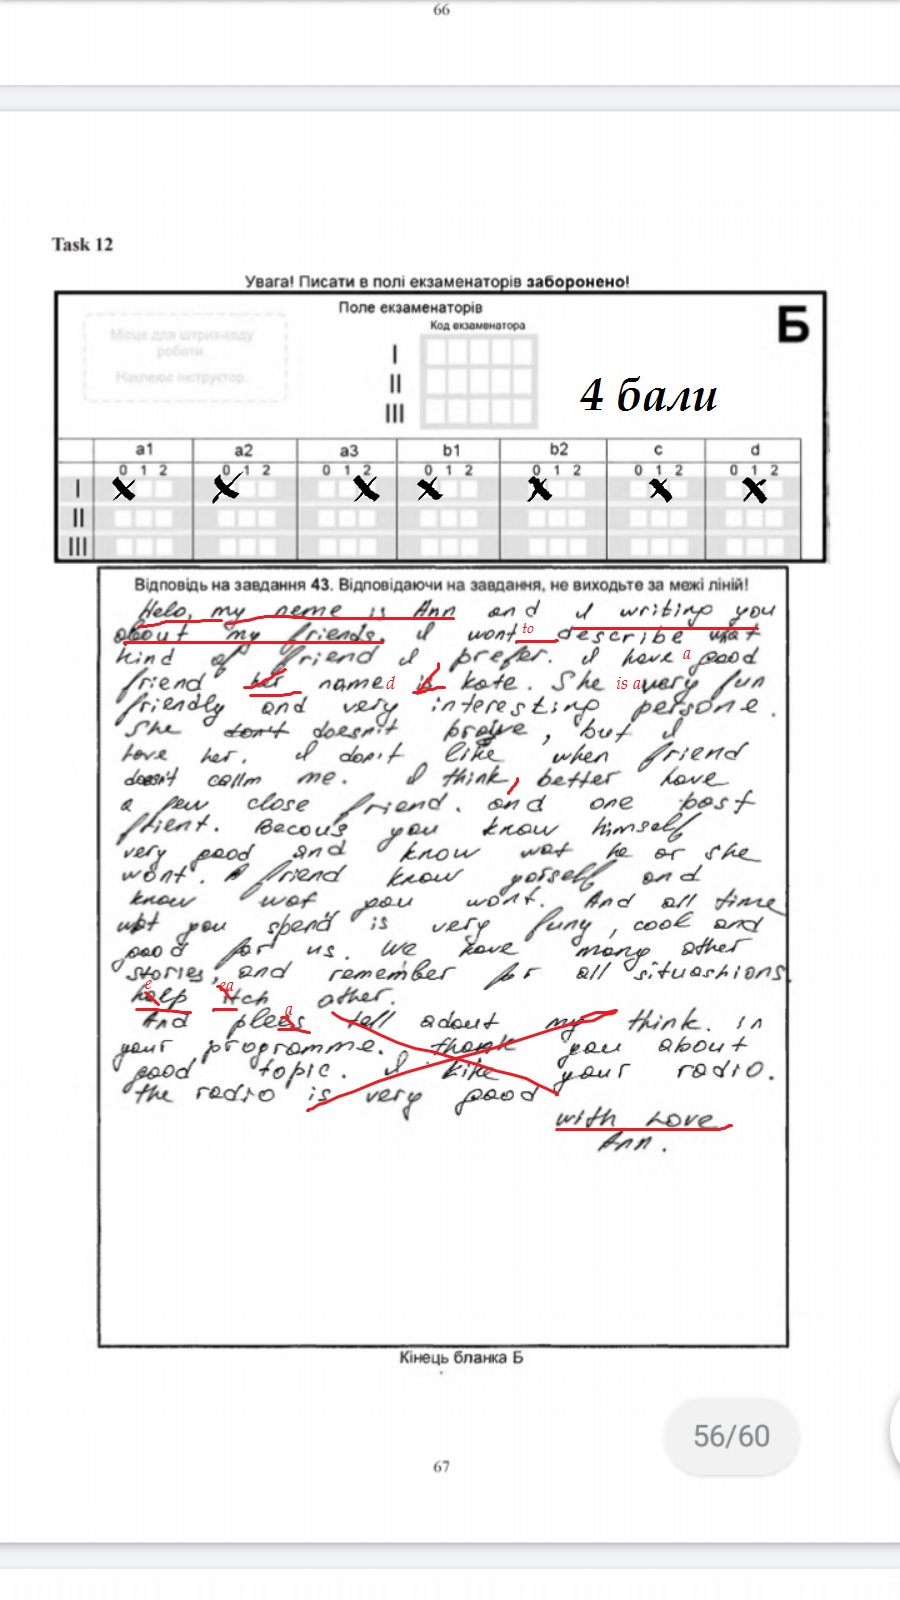 66
Task 12
Увага! Писати в полі екзаменаторів заборонено!
Поле екзаменаторів
Код екзаменатора
Б
Місце для штрих-коду
роботи.
Наклеює інструктор.
I
II
III
4 бали
a1 a2 a3 b1 b2 c d
0 1 2 0 1 2 0 1 2 0 1 2 0 1 2 0 1 2 0 1 2
I
II
III
Відповідь на завдання 43. Відповідаючи на завдання, не виходьте за межі ліній!
Helo, my neme is Ann and I writing you
about my friends. I wont to describe what
kind of friend I prefer. I have a good
friend her named is kate. She is a very fun
friendly and very interesting persone.
She don't doesn't , but I
love her. I don't like when friend
doesn't callm me. I think, better have
a few close friend. and one bast
frient. Becous you know himself
very good and know wat he or she
wont. A friend know yorself and
know wat you wont. And all time
wat you spend is very funy, cook and
good for us. We have many other
stories, and remember for all situashions
halp e itch ea other.
And plees a tell adout my think. in
your programme. thank you about
good topic. I like your radio.
the radio is very good
with love
Ann.
Кінець бланка Б
56/60
67